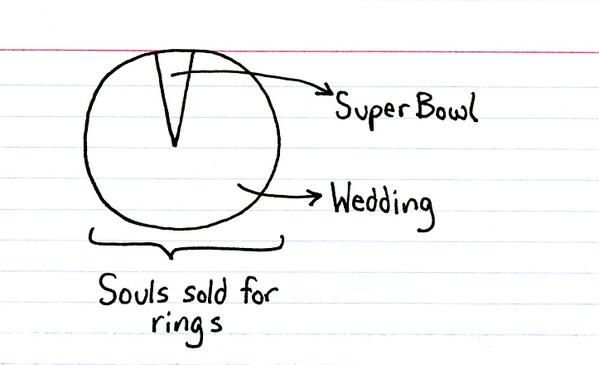 Super Bowl
Wedding
Souls sold for
rings